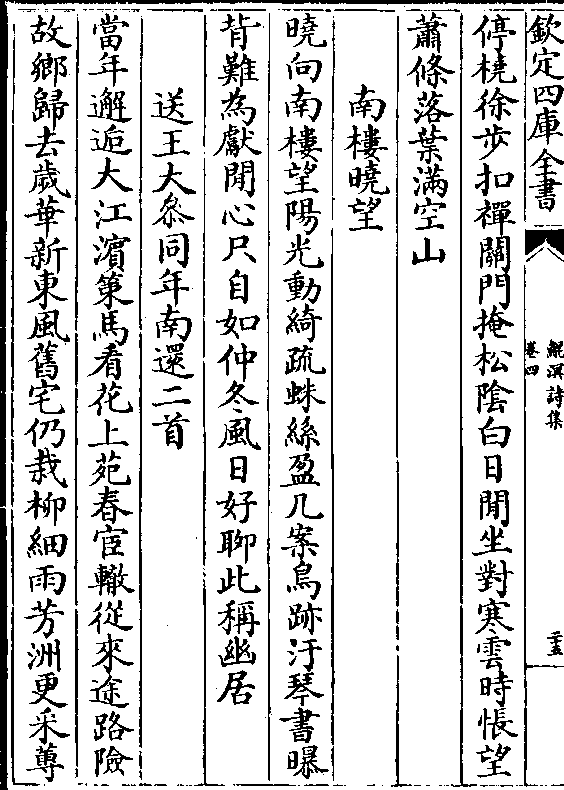 欽定四庫全書
鯤溟詩集
卷四
二十五
停橈徐步扣禪關門掩松陰白日閒坐對寒雲時悵望
蕭條落葉滿空山
南樓曉望
曉向南樓望陽光動綺疏蛛絲盈几案鳥跡汙琴書曝
背難為獻閒心只自如仲冬風日好聊此稱幽居
送王大叅同年南還二首
當年邂逅大江濱策馬看花上苑春宦轍從來途路險
故鄉歸去歲華新東風舊宅仍栽柳細雨芳洲更采蓴